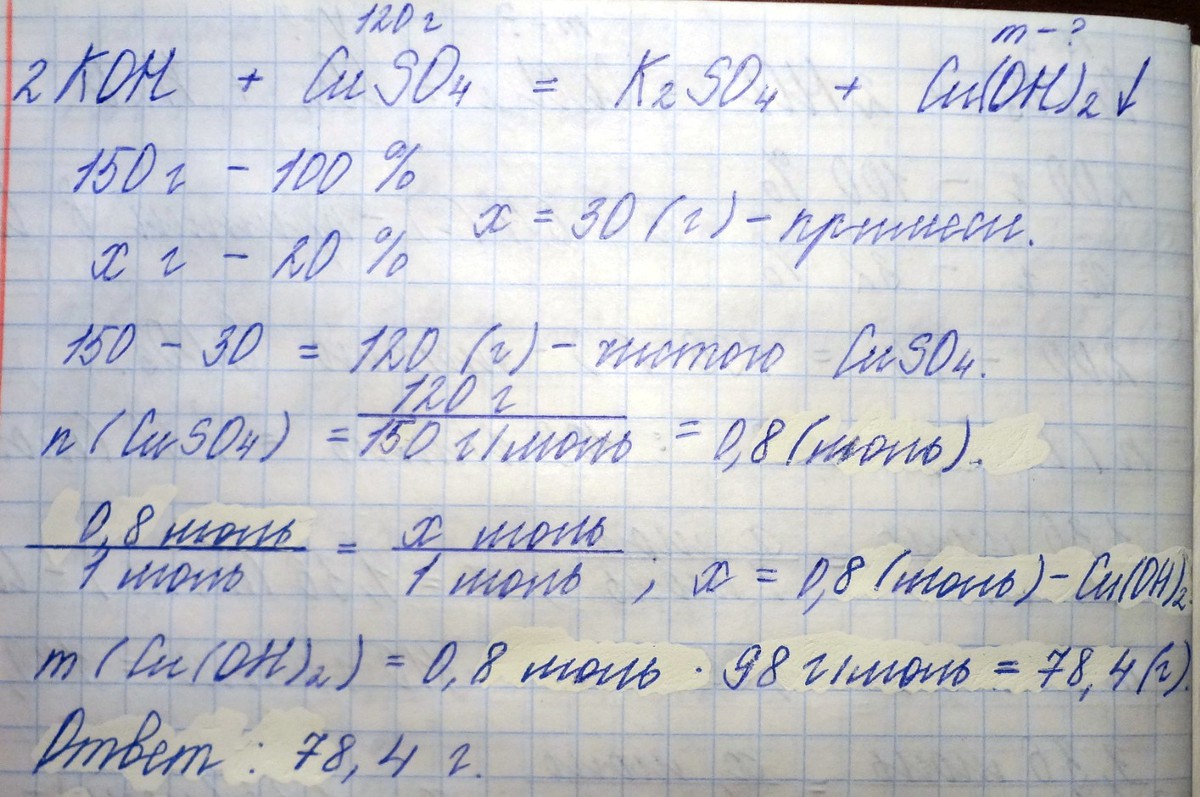 120 г m - ?
2 KOH + CuSO4 = K2SO4 + Cu(OH)2↓
150 г - 100 %
x = 30 (г) - примеси.
x г - 20 %
150 - 30 = 120 (г) - чистого CuSO4.
120 г
n (CuSO4) = 150 г/моль = 0,8 (моль).
0,8 моль = x моль
1 моль 1 моль ; x = 0,8 (моль) - Cu(OH)2.
m (Cu(OH)2) = 0,8 моль · 98 г/моль = 78,4 (г).
Ответ : 78,4 г.